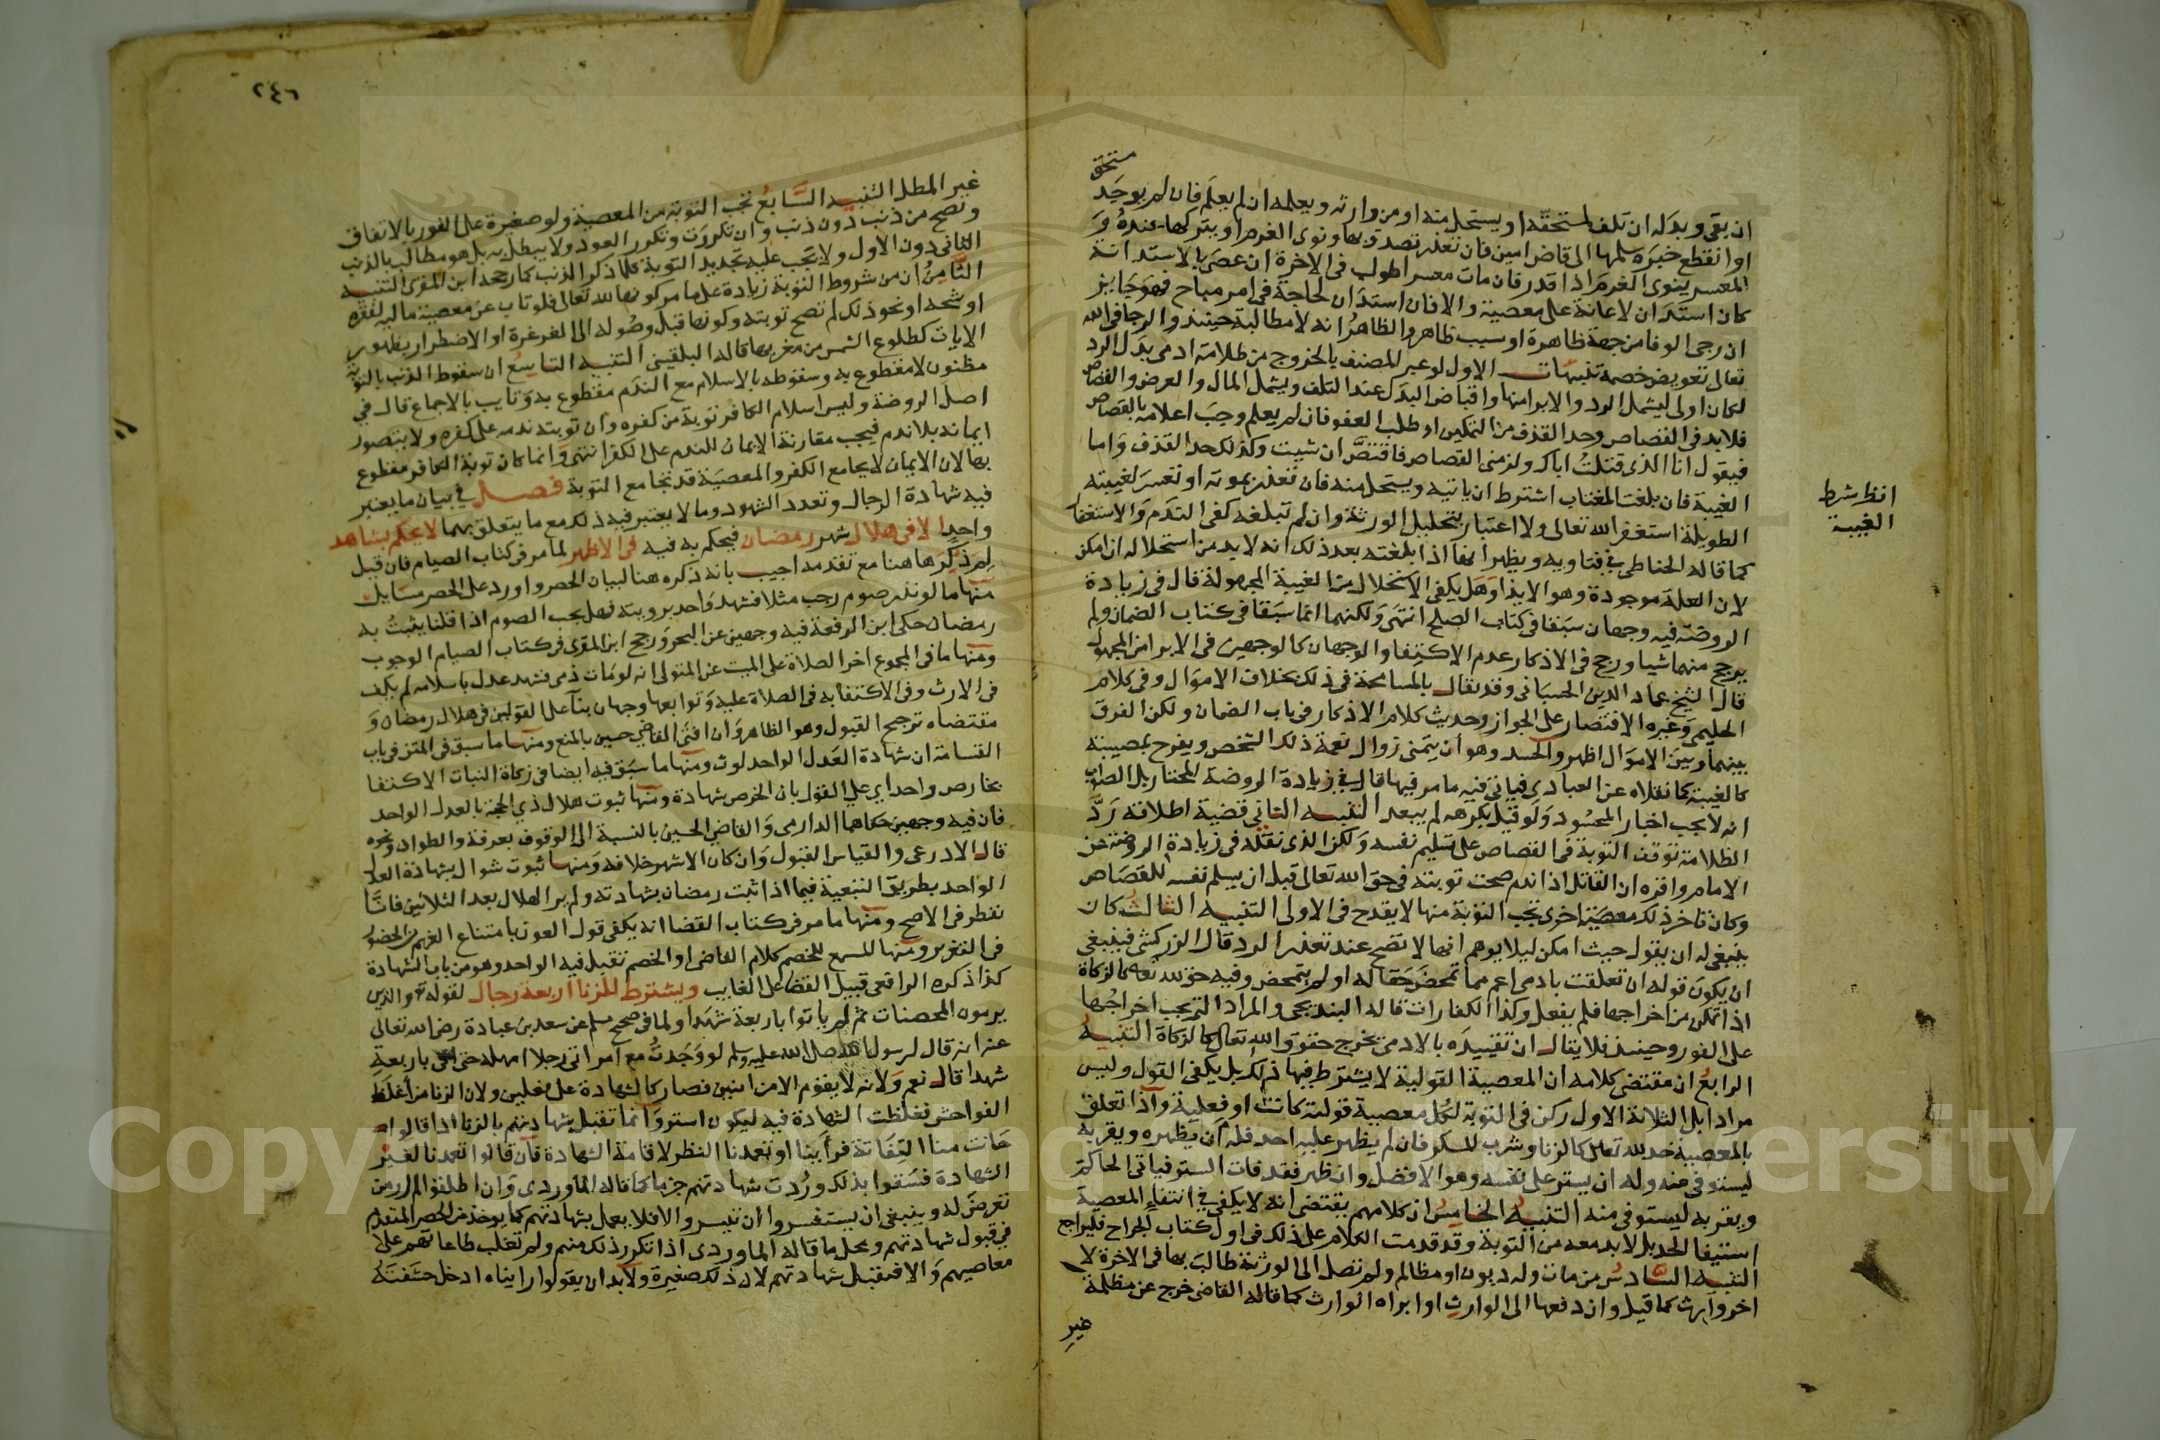 مستحق
ان بقى وبدله ان تلف لمستحقه او يستحل منه او من وارثه ويعلمه ان لم يعلم فان لم يوجد
او انقطع خبره سلمها الى قاض امين فان تعذر تصدق بها ونوى الغرم او يتركها عنده و
المعسر ينوى الغرم اذا قدر فان مات معسرا طولب فى الاخرة ان عصى بالاستدانة
كان استدان لاعانة على معصية والا فان استدان لحاجة فى امر مباح فهو جايز
ان رجى الوفا من جهة ظاهرة او سبب ظاهر والظاهر انه لا مطالبة حينئذ والرجا فى الله
تعالى تعويض خصمه تنبيهات الاول لو عبر المصنف بالخروج من ظلامة ادمى بدل الرد
لكان اولى ليشمل الرد والابرا منها واقباض البدل عند التلف ويشمل المال والعرض والقصاص
فلابد فى القصاص وحد القذف من التمكين او طلب العفو فان لم يعلم وجب اعلامه بالقصاص
فيقول انا الذى قتلت اباك ولزمنى القصاص فاقتص ان شيت وكذلك حد القذف واما
الغيبة فان بلغت المغتاب اشترط ان ياتيه ويستحل منه فان تعذر بموته او تعسر لغيبته
الطويلة استغفر الله تعالى ولا اعتبار بتحليل الورثة وان لم تبلغه كفى الندم والاستغفار
كما قاله الحناطى فى فتاويه ويظهر انها اذا بلغته بعد ذلك انه لابد من استحلاله ان امكن
لان العلة موجودة وهو الايذا وهل يكفى الاستحلال من الغيبة المجهولة قال فى زيادة
الروضة فيه وجهان سبقا فى كتاب الصلح انتهى ولكنهما انما سبقا فى كتاب الضمان ولم
يرجح منهما شيا ورجح فى الاذكار عدم الاكتفا والوجهان كالوجهين فى الابرا من المجهول
قال الشيخ عماد الدين الحسبانى وقد يقال بالمسامحة فى ذلك بخلاف الاموال وفى كلام
الحليمى وغيره الاقتصار على الجواز وحديث كلام الاذكار فى باب الضمان ولكن الفرق
بينهما وبين الاموال اظهر والحسد وهو ان يتمنى زوال نعمة ذلك الشخص ويفرح بمصيبته
كالغيبة كما نقلاه عن العبادى فياتى فيه ما مر فيها قال فى زيادة الروضة المختار بل الصواب
انه لا يجب اخبار المحسود ولو قيل يكره لم يبعد التنبيه الثانى قضية اطلاقه رد
الظلامة توقف التوبة فى القصاص على تسليم نفسه ولكن الذى نقله فى زيادة الروضة عن
الامام واقره ان القاتل اذا ندم صحت توبته فى حق الله تعالى قبل ان يسلم نفسه للقصاص
وكان تاخر ذلك معصية اخرى تجب التوبة منها لا يقدح فى الاولى التنبيه الثالث كان
ينبغى له ان يقول حيث امكن ليلا يوهم انها لا تصح عند تعذر الرد قال الزركشى فينبغى
ان يكون قوله ان تعلقت بادمى اعم مما تمحض حقا له او لم يتمحض وفيه حق لله تعالى كالزكاة
اذا تمكن من اخراجها فلم يفعل وكذا الكفارات قاله البندنيجى والمراد التى يجب اخراجها
على الفور وحينئذ فلا يقال ان تقييده بالادمى يخرج حقوق الله تعالى كالزكاة التنبيه
الرابع ان مقتضى كلامه ان المعصية القولية لا يشترط فيها ذلك بل يكفى القول وليس
مرادا بل الثلاثة الاول ركن فى التوبة لكل معصية قولية كانت او فعلية واذا تعلق
بالمعصية حد لله تعالى كالزنا وشرب المسكر فان لم يظهر عليه احد فله ان يظهره ويقر به
ليستوفى منه وله ان يستر على نفسه وهو الافضل وان ظهر فقد فات الستر فياتى الحاكم
ويقر به ليستوفى منه التنبيه الخامس ان كلامهم يقتضى انه لا يكفى فى انتفاء المعصية
استيفا الحد بل لابد معه من التوبة وقد قدمت الكلام على ذلك فى اول كتاب الجراح فليراجع
التنبيه السادس من مات وله ديون او مظالم ولم تصل الى الورثة طالب بها فى الاخرة لا
اخر وارث كما قيل وان دفعها الى الوارث او ابراه الوارث كما قاله القاضى خرج عن مظلمة
غير
انظر شرط
الغيبة
٢٤٦
غير المطل التنبيه السابع تجب التوبة من المعصية ولو صغيرة على الفور بالاتفاق
وتصح من ذنب دون ذنب وان تكررت وتكرر العود ولا يبطل به بل هو مطالب بالذنب
الثانى دون الاول ولا يجب عليه تجديد التوبة كلما ذكر الذنب كما رجحه ابن المقرى التنبيه
الثامن ان من شروط التوبة زيادة على ما مر كونها لله تعالى فلو تاب عن معصية مالية لفقره
او شحه او نحو ذلك لم تصح توبته وكونها قبل وصوله الى الغرغرة او الاضطرار بظهور
الايات كطلوع الشمس من مغربها قاله البلقينى التنبيه التاسع ان سقوط الذنب بالتوبة
مظنون لا مقطوع به وسقوطه بالاسلام مع الندم مقطوع به وتايب بالاجماع قال فى
اصل الروضة وليس اسلام الكافر توبة من كفره وان توبته ندمه على كفره ولا يتصور
ايمانه بلا ندم فيجب مقارنة الايمان للندم على الكفر انتهى وانما كان توبة الكافر مقطوع
بها لان الايمان لا يجامع الكفر والمعصية قد تجامع التوبة فصل فى بيان ما يعتبر
فيه شهادة الرجال وتعدد الشهود وما لا يعتبر فيه ذلك مع ما يتعلق بهما لا يحكم بشاهد
واحد الا فى هلال شهر رمضان فيحكم به فيه فى الاظهر لما مر فى كتاب الصيام فان قيل
لم ذكرها هنا مع تقدمه اجيب بانه ذكره هنا لبيان الحصر واورد على الحصر مسايل
منها ما لو نذر صوم رجب مثلا فشهد واحد برويته فهل يجب الصوم اذا قلنا يثبت به
رمضان حكى ابن الرفعة فيه وجهين عن البحر ورجح ابن المقرى فى كتاب الصيام الوجوب
ومنها ما فى المجموع اخر الصلاة على الميت عن المتولى انه لو مات ذمى فشهد عدل باسلامه لم يكف
فى الارث وفى الاكتفا به فى الصلاة عليه وتوابعها وجهان بنا على القولين فى هلال رمضان و
مقتضاه ترجيح القبول وهو الظاهر وان افتى القاضى حسين بالمنع ومنها ما سبق فى المتن فى باب
القسامة ان شهادة العدل الواحد لوث ومنها ما سبق فيه ايضا فى زكاة النبات الاكتفا
بخارص واحد اى على القول بان الخرص شهادة ومنها ثبوت هلال ذى الحجة بالعدل الواحد
فان فيه وجهين حكاهما الدارمى والقاضى الحسين بالنسبة الى الوقوف بعرفة والطواف ونحوه
قال الاذرعى والقياس القبول وان كان الاشهر خلافه ومنها ثبوت شوال بشهادة العدل
الواحد بطريق التبعية فيما اذا ثبت رمضان بشهادته ولم ير الهلال بعد الثلاثين فانا
نفطر فى الاصح ومنها ما مر فى كتاب القضا انه يكفى قول العون بامتناع الغريم من الحضور
فى التعزير ومنها المسمع للخصم كلام القاضى او الخصم تقبل فيه الواحد وهو من باب الشهادة
كذا ذكره الرافعى قبيل القضا على الغايب ويشترط للزنا اربعة رجال لقوله تعالى والذين
يرمون المحصنات ثم لم ياتوا باربعة شهدا ولما فى صحيح مسلم عن سعد بن عبادة رضى الله تعالى
عنه انه قال لرسول الله صلى الله عليه وسلم لو وجدت مع امراتى رجلا امهله حتى اتى باربعة
شهدا قال نعم ولانه لا يقوم الا من اثنين فصار كالشهادة على فعلين ولان الزنا من اغلظ
الفواحش فغلظت الشهادة فيه ليكون استر وانما تقبل شهادتهم بالزنا اذا قالوا
حانت منا التفاتة فراينا او تعمدنا النظر لاقامة الشهادة فان قالوا تعمدنا لغير
الشهادة فسقوا بذلك وردت شهادتهم جزما كما قاله الماوردى وان اطلقوا لم ار من
تعرض له وينبغى ان يستفسروا ان تيسر والا فلا يعمل بشهادتهم كما يوخذ من الحصر المتقدم
فى قبول شهادتهم ومحل ما قاله الماوردى اذا تكرر ذلك منهم ولم تغلب طاعاتهم على
معاصيهم والا فتقبل شهادتهم لان ذلك صغيرة ولابد ان يقولوا رايناه ادخل حشفته